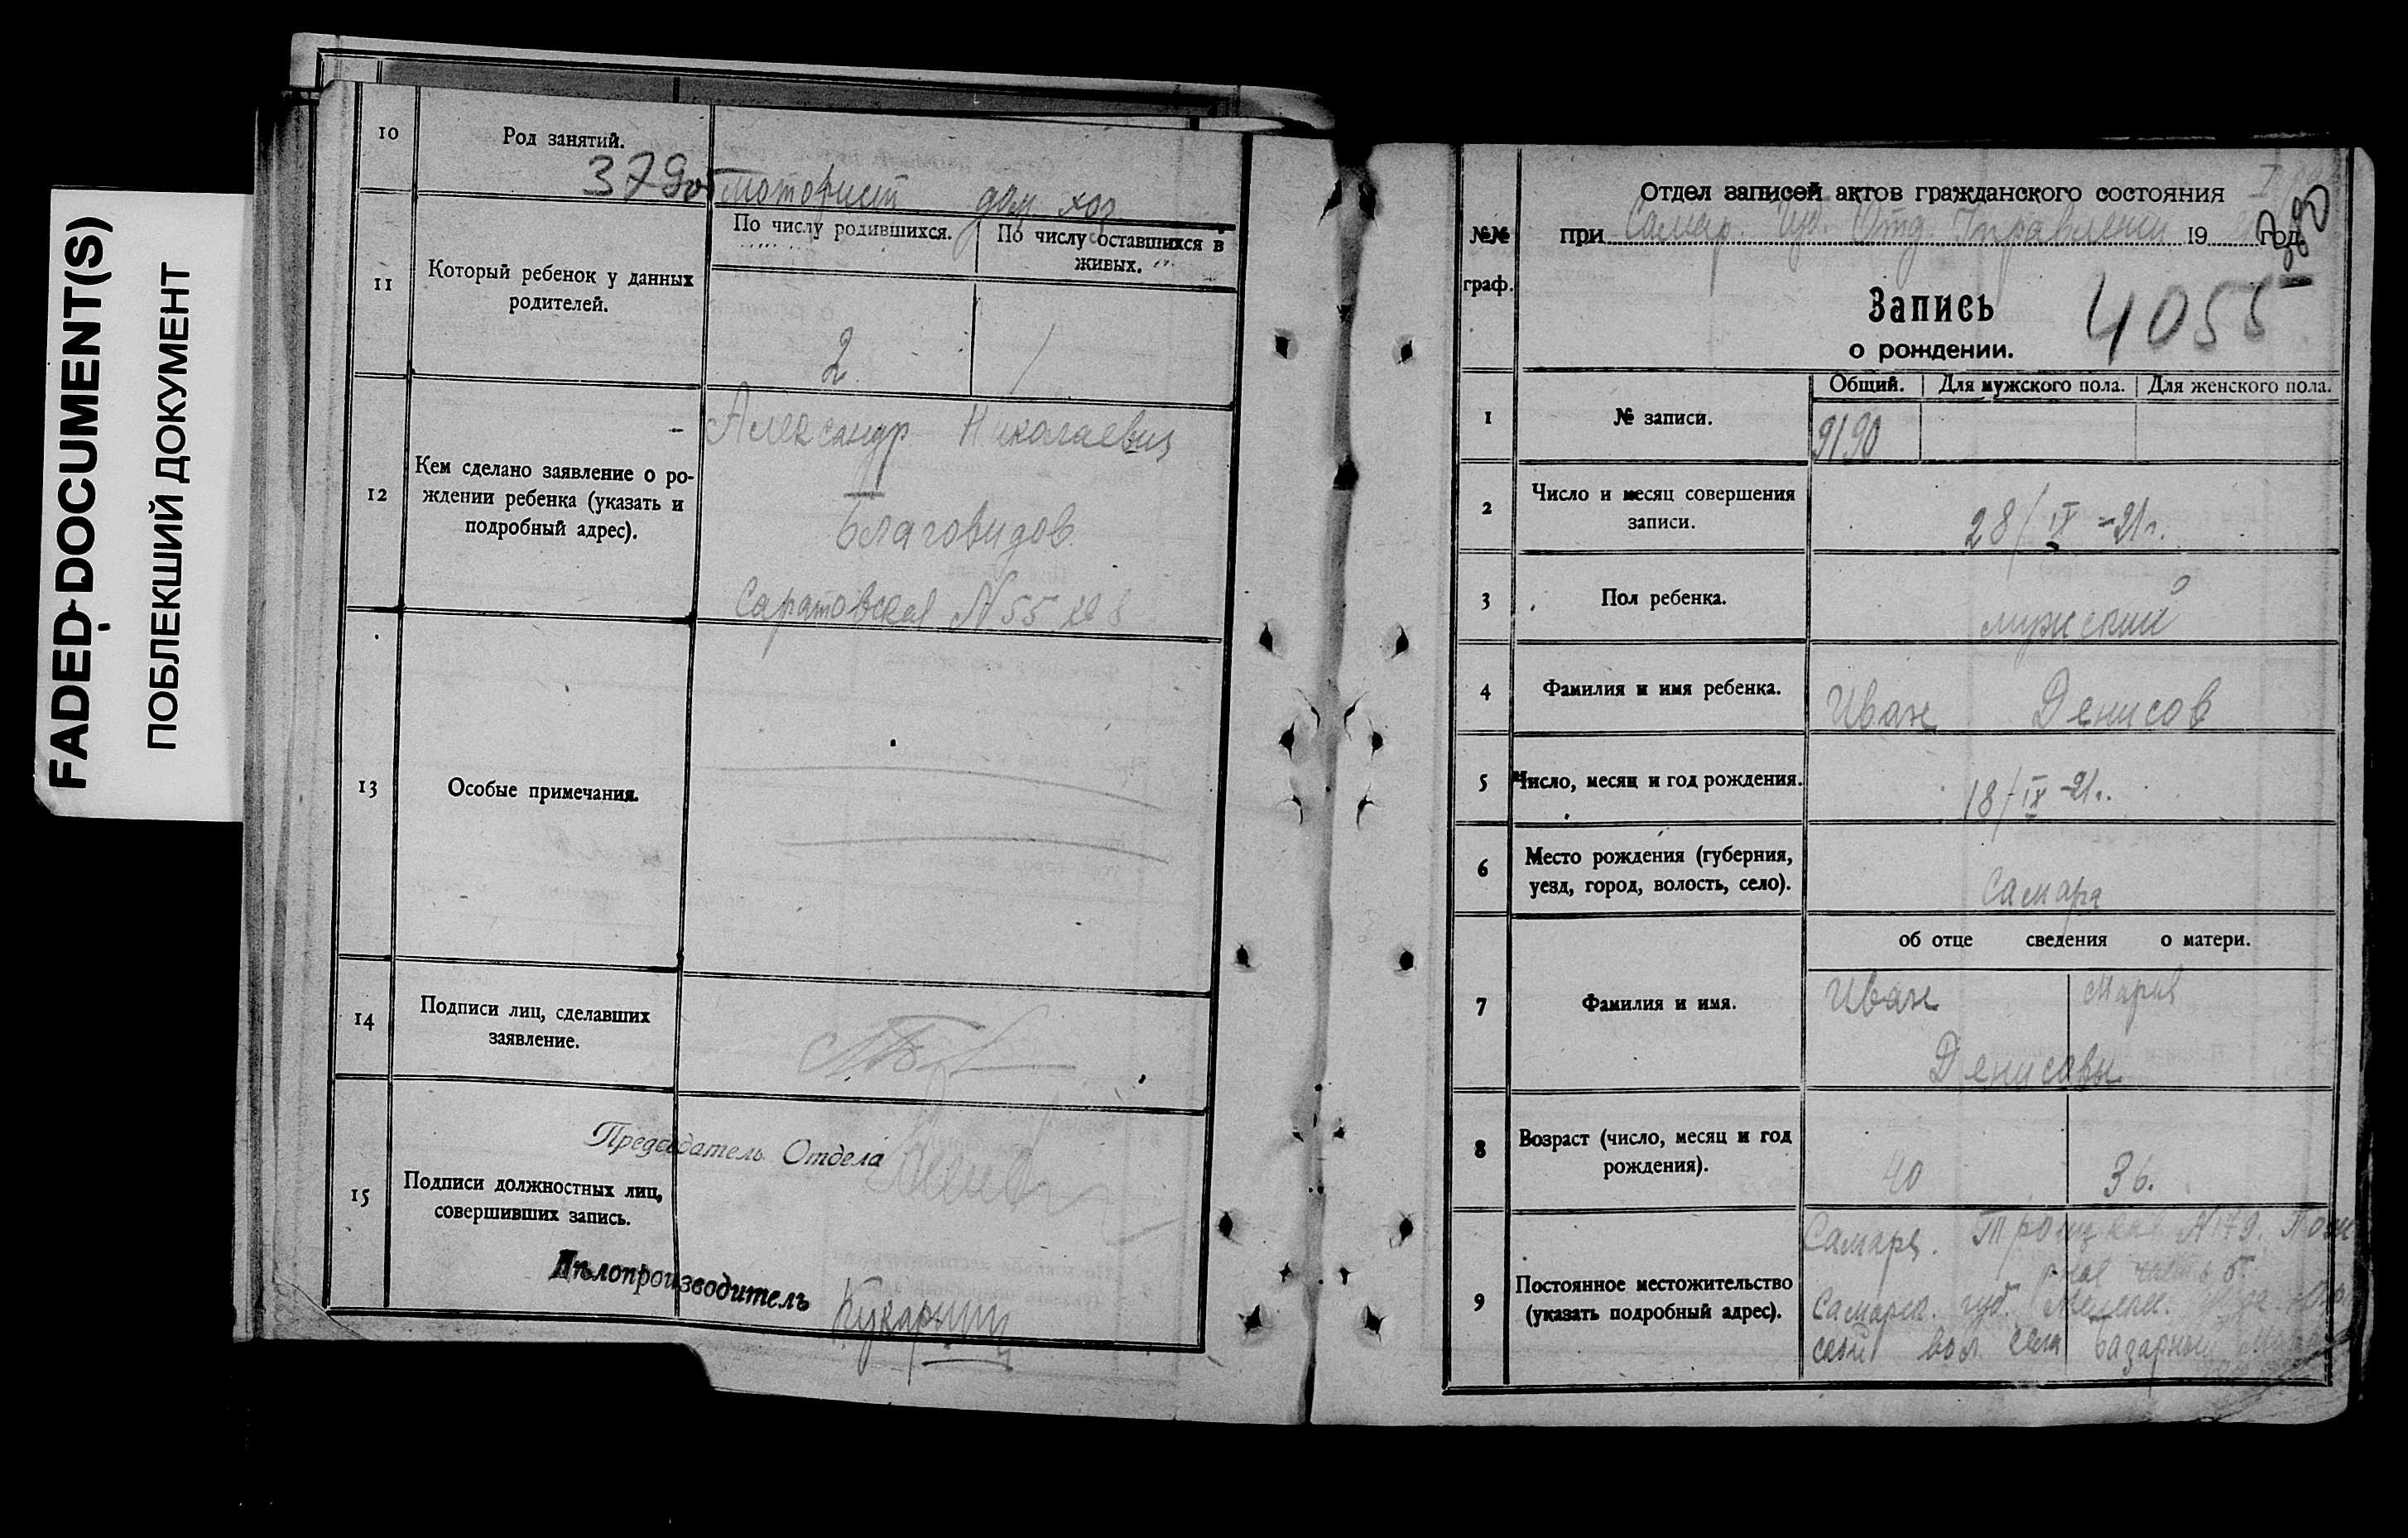 FADED DOCUMENT(S)
ПОБЛЕКШИЙ ДОКУМЕНТ
10
Род занятий.
379об
моторист дом. хоз.
11
Который ребенок у данных
родителей.
По числу родившихся.
По числу оставшихся в
живых.
2
1
12
Кем сделано заявление о ро-
ждении ребенка (указать и
подробный адрес).
Александр Николаевич
Благовидов
Саратовская N 55 кв 8
13
Особые примечания.
14
Подписи лиц, сделавших
заявление.
15
Подписи должностных лиц,
совершивших запись.
Председатель Отдела
Дѣлопроизводитель
№№
граф.
Отдел записей актов гражданского состояния
при Самар. Губ. Отд. Управлени 19 год.
380
Запись
о рождении.
4055
1
№ записи.
Общий.
Для мужского пола.
Для женского пола.
9190
2
Число и месяц совершения
записи.
28/IX-21г.
3
Пол ребенка.
мужской
4
Фамилия и имя ребенка.
Иван Денисов
5
Число, месяц и год рождения.
18/IX-21г.
6
Место рождения (губерния,
уезд, город, волость, село).
Самара
об отце сведения о матери.
7
Фамилия и имя.
Иван
Мария
Денисовы
8
Возраст (число, месяц и год
рождения).
40
36.
9
Постоянное местожительство
(указать подробный адрес).
Самара. Троицкая N 179.
часть
Самарск. губ. Мелекес.
вол. села Базарный